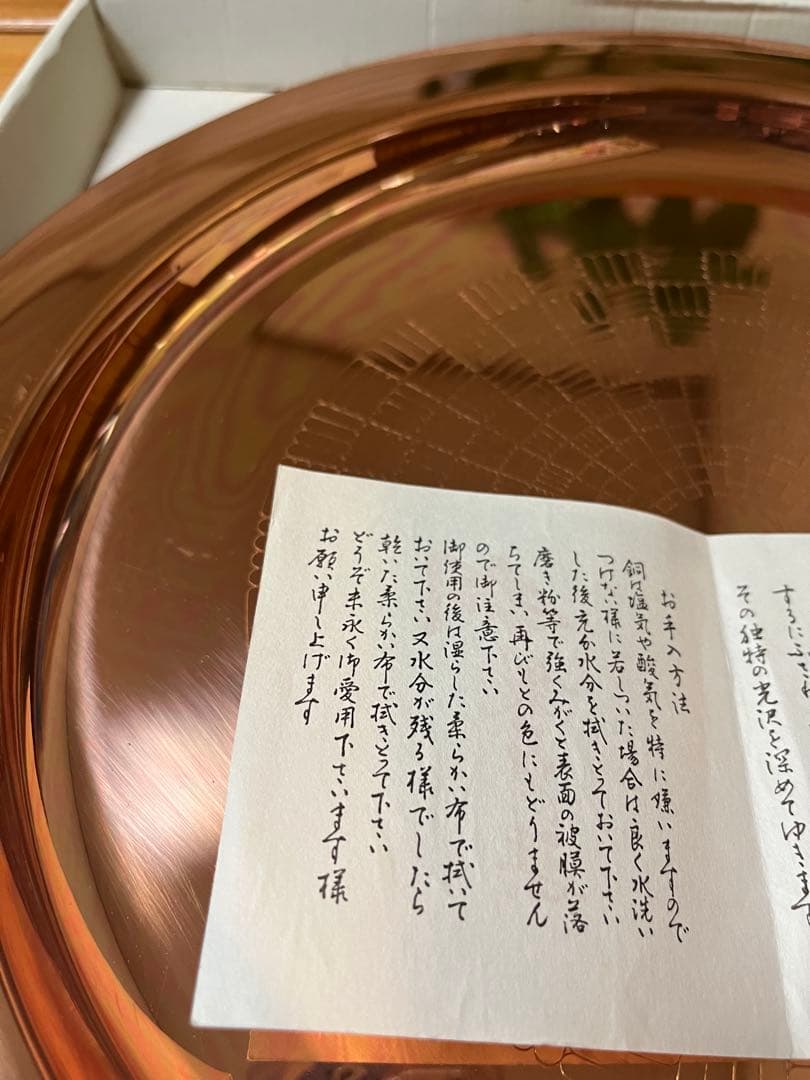 するにふさわ
その独特の光沢を深めてゆきます
お手入方法
銅は塩気や酸気を特に嫌いますので
つけない様に若しついた場合は良く水洗い
した後充分水分を拭きとっておいて下さい
磨き粉等で強くみがくと表面の被膜が落
ちてしまい再びもとの色にもどりません
ので御注意下さい
御使用の後は湿らした柔らかい布で拭いて
おいて下さい又水分が残る様でしたら
乾いた柔らかい布で拭きとって下さい
どうぞ末永く御愛用下さいます様
お願い申し上げます